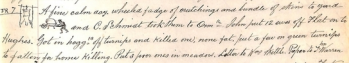 FR 7 A fine calm day. wheeled fadge of mutchings and bundle of skins to yard
and C. Schmidt took them to Oam & John put 12 ewes off Flat on to
Hughes. Got in hoggts off turnips and killed one, none fat, just a few on green turnips
to gallon for home killing. Put 2 from ones in meadow. Letter to Mr Bettle. Paper to L. Warren